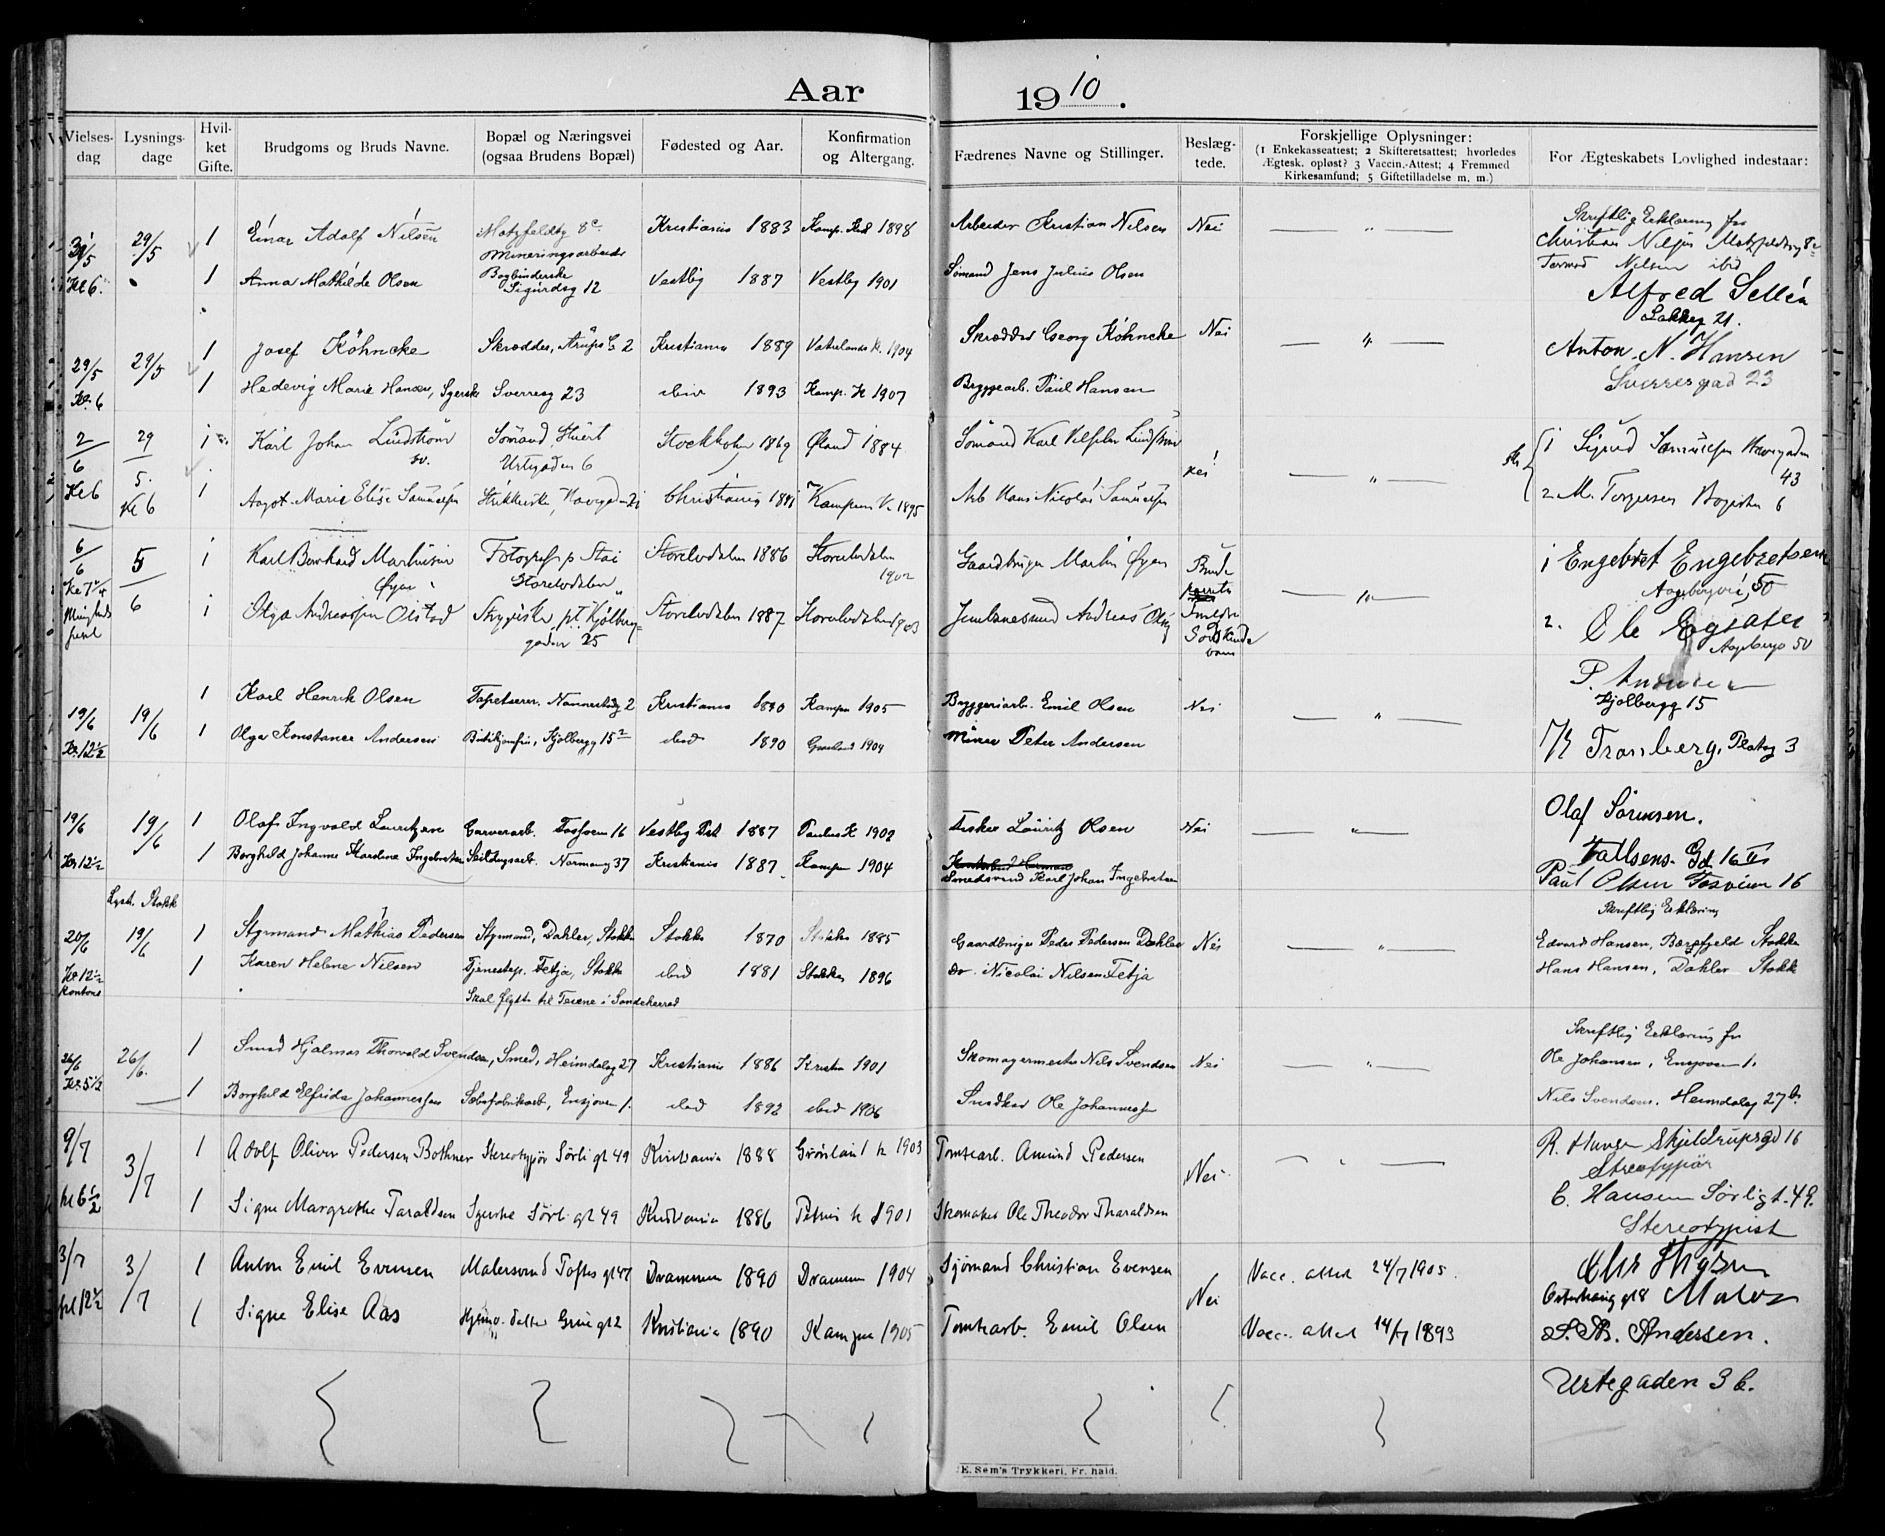 Aar 1910.
Vielses-dag Lysnings-dage Hvil-ket Gifte. Brudgoms og Bruds Navne. Bopæl og Næringsvei (ogsaa Brudens Bopæl) Fødested og Aar. Konfirmation og Altergang. Fædrenes Navne og Stillinger. Beslæg-tede. Forskjellige Oplysninger: (1 Enkekasseattest; 2 Skifteretsattest; hvorledes Ægtesk. opløst? 3 Vaccin.-Attest; 4 Fremmed Kirkesamfund; 5 Giftetilladelse m. m.) For Ægteskabets Lovlighed indestaar:
31/5 29/5 1 Einar Adolf Nilsen Motzfeldtg 8c Mineringsarbeider Kristiania 1883 Kamp. Kirk 1898 Arbeider Kristian Nilsen Nei — " — Skriftlig Erklæring fra Christian Nilsen Motzfeldtsg 8c
Kl 6. 1 Anna Mathilde Olsen Bogbinderske Sigurdsg 12 Vestby 1887 Vestby 1901 Sømand Jens Julius Olsen Tormod Nilsen ibid
29/5 29/5 1 Josef Köhncke Skrædder, Arups G. 2 Kristiania 1889 Vaterlands K. 1904 Skrædder Georg Köhncke Nei — " — Alfred Sellén Lakkeg 21.
Kl. 6 1 Hedevig Marie Hansen, Syerske Sverresg 23 ibid 1893 Kamp. K 1907 Bryggearb. Paul Hansen Anton. N. Hansen Sverresgad 23
2/6 29/5. 1 Karl Johan Lindström Sømand Urtegaden 6 Stockholm 1869 Øland 1884 Sømand Karl Vilhelm Lindström nei — " — 1 Sigurd Samuelsen Havegaden 43
Kl 6 Kl 6 1 Aagot Marie Elise Samuelsen Strikkerske, Havegaden Christiania Kampens K. 1895 Arb Hans Nicolai Samuelsen 2 M. Torgersen 6
6/6 5/6 1 Karl Bernhard Martinsen Øyen Fotograf p. Stai Storelvdalen Storelvdalen 1886 Storelvdalen 1902 Gaardbruger Martin Øyen — " — 1 Engebret Engebretsen Aagebergvei 50
1 Olga Andreassen Olstad Sypiske, pt. Kjølberggaden 25 Storelvdalen 1887 Storelvdalen 1903 Jernbanemand Andreas Sødskendebarn 2. Ole Egsæter Aagebergv 50
19/6 19/6 1 Karl Henrik Olsen Tapetserer. Nannestadg 2 Kristiania 1880 Kampen 1905 Bryggeriarb. Emil Olsen Nei — " — P. Andersen Kjølbergg 15
Kl. 12½ 1 Olga Konstance Andersen Butikjomfru, Kjølbergg 15² ibid 1890 Grønland 1904 Murer Peter Andersen Tronberg, Platog 3
19/6 19/6 1 Olaf Ingvald Lauritzen Garverarb. Tosveien 16 Vestby Pst 1887 Paulus K 1902 Fisker Lauritz Olsen Nei — " — Olaf Sörensen. Fallsens Gd. 16 II
Kl 12½ 1 Borghild Johanne Kardine Ingebretsen Skildugsarb. Normannsg 37 Kristiania 1887. Kampen 1904 Smedsvend Karl Johan Ingebretsen Paul Olsen Tosveien 16
Lyst. Stokk Skriftlig Erklæring
20/6 19/6 1 Styrmand Mathias Pedersen Styrmand, Dahler, Stokke Stokke 1870 Stokke 1885 Gaardbruger Peder Pedersen Dahler Nei — " — Edvard Hansen, Bærefjeld Stokke
Kl 12½ Kontoret 1 Karen Helene Nilsen Tjenestep. Fetja, Stokke ibid 1881 Stokke 1896 do. Nicolai Nilsen Fetja Hans Hansen, Dahler Stokke
Skal flytte til Teiene i Sandeherred
26/6 26/6. 1 Smed Hjalmar Thorvald Svendsen, Smed, Heimdalsg 27 Kristiania 1886 Kristia 1901 Skomagermester Nils Svendsen Nei — " — Skriftlig Erklæring fra Ole Johansen, Ensjøveien 1.
Kl. 5½ 1 Borghild Elfrida Johannessen Sæbefabrikarb, Ensjøveien 1. ibid 1892 ibid 1906 Snedker Ole Johannessen Nils Svendsen. Heimdalsg 27b.
9/7 3/7 1 Adolf Oliver Pedersen Bothner Stereotypør Sørligt 49 Kristiania 1888 Grønland k 1903 Tomtearb. Amund Pedersen Nei — " — R. Hauge Skjeldrupsgd 16 Stereotypør
kl 6½ 1 Signe Margrethe Taraldsen Syerske Sørligt 49 Kristiania 1886 Petrus k 1901 Skomaker Ole Theodor Tharaldsen C. Hansen Sørligt. 49. Stereotypist
3/7 3/7 1 Anton Emil Evensen Malersvend Toftes gt 47 Drammen 1890 Drammen 1904 Sjømand Christian Evensen Nei Vacc. attest 24/7 1905. Osterhausg gt 8 Maler
kl 12½ 1 Signe Elise Aas Hjemv. datter Grûnegt 2 Kristiania 1890 Kampen 1905 Tomtearb. Emil Olsen Vacc. attest 14/7 1893 Andersen.
Urtegaden 3 b.
E. Sem's Trykkeri, Fr.hald.